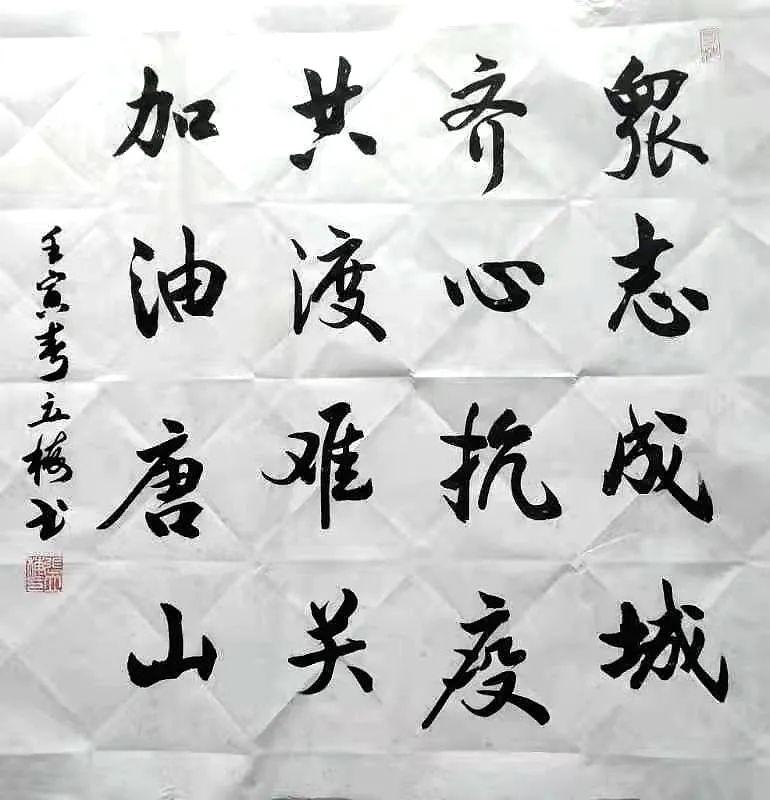 眾志成城
齐心抗疫
共渡难关
加油唐山
壬寅春立梅书